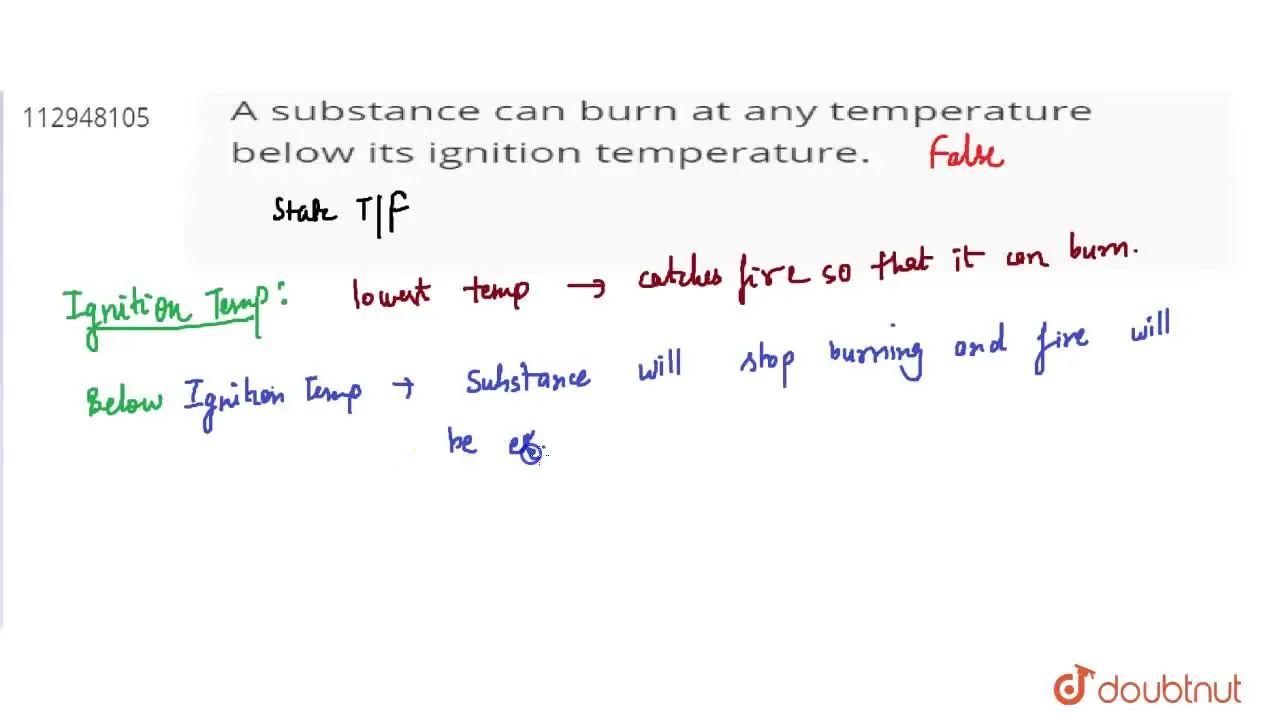 112948105
A substance can burn at any temperature
below its ignition temperature. False
State T/F
Ignition Temp: lowest temp → catches fire so that it can burn.
Below Ignition Temp → Substance will stop burning and fire will
be ex
doubtnut